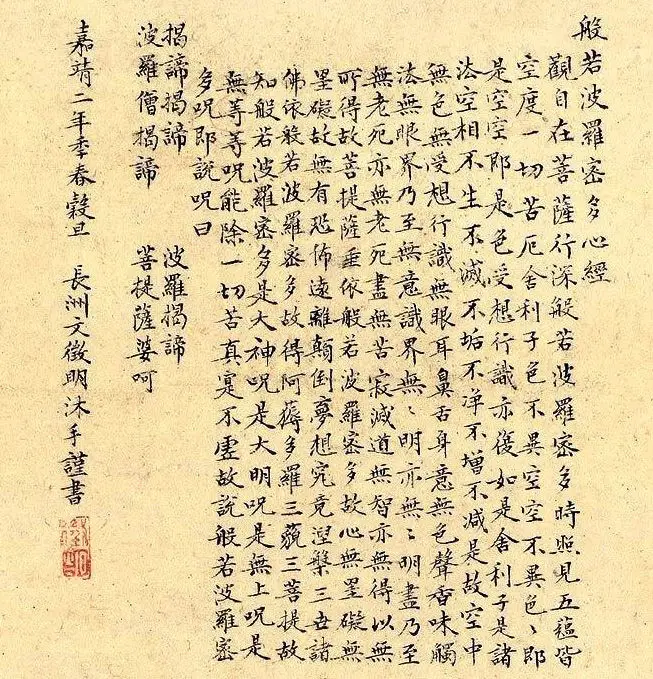 般若波羅密多心經
觀自在菩薩行深般若波羅密多時照見五蘊皆
空度一切苦厄舍利子色不異空空不異色〻即
是空空即是色受想行識亦復如是舍利子是諸
法空相不生不滅不垢不淨不增不減是故空中
無色無受想行識無眼耳鼻舌身意無色聲香味觸
法無眼界乃至無意識界無〻明亦無〻明盡乃至
無老死亦無老死盡無苦寂滅道無智亦無得以無
所得故菩提薩垂依般若波羅密多故心無罣礙無
罣礙故無有恐怖遠離顛倒夢想究竟涅槃三世諸
佛依般若波羅密多故得阿耨多羅三藐三菩提故
知般若波羅密多是大神呪是大明呪是無上呪是
無等等呪能除一切苦真寔不虛故說般若波羅密
多呪即說呪曰
揭諦揭諦 波羅揭諦
波羅僧揭諦 菩提薩婆呵
嘉靖二年季春穀旦 長洲文徵明沐手謹書